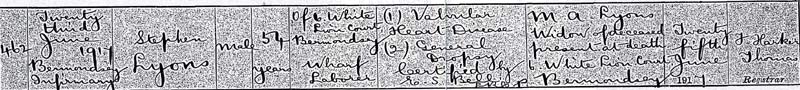 462
Twenty
third
June
1917
Bermondsey
Infirmary
Stephen
Lyons
Male
54
years
Of 6 White
Lion Court
Bermondsey
Wharf
Laborer
(1) Valvular
Heart Disease
(2) General
Dropsy
Certified by
M. A. Lyons
Widow of deceased
present at death
6 White Lion Court
Bermondsey
Twenty
fifth
June
1917
F Harker
Thomas
Registrar